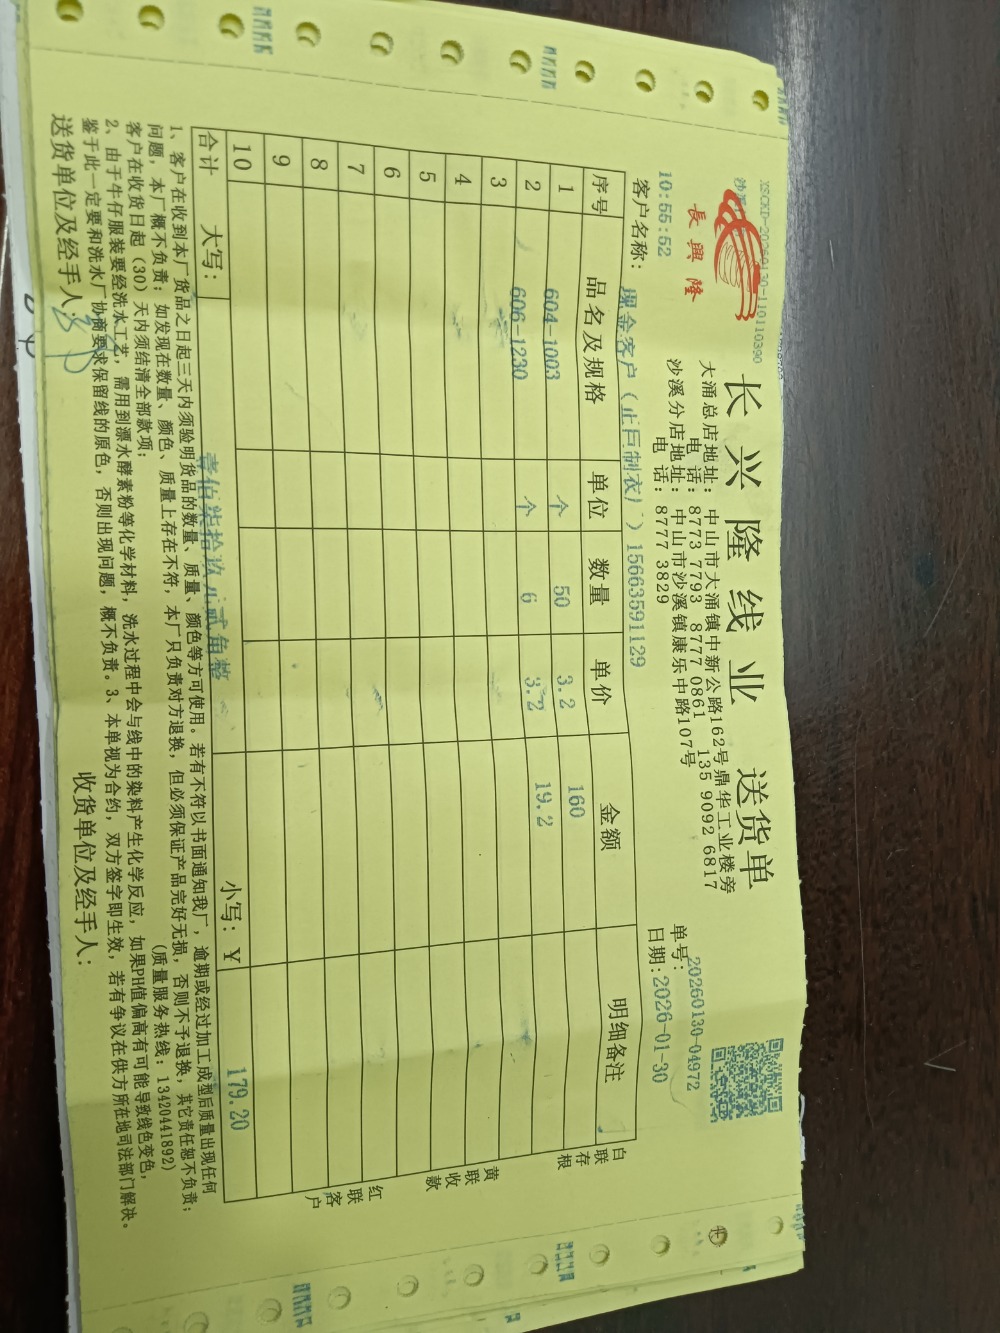 XSCKD-20260130-1101110390
長興隆
长兴隆线业 送货单
大涌总店地址：中山市大涌镇中新公路162号鼎华工业楼旁
电 话：8773 7793 8777 0861 135 9092 6817
沙溪分店地址：中山市沙溪镇康乐中路107号
电 话：8777 3829
10:55:52
单号：20260130-04972
日期：2026-01-30
客户名称：现金客户（正巨制衣厂）15663591129
序号 品名及规格 单位 数量 单价 金额 明细备注
1 604-1003 个 50 3.2 160
2 606-1230 个 6 3.2 19.2
3
4
5
6
7
8
9
10
合计 大写：壹佰柒拾玖元贰角整 小写：￥ 179.20
白联存根
黄联收款
红联客户
1、客户在收到本厂货品之日起三天内须验明货品的数量、质量、颜色等方可使用。若有不符以书面通知我厂，逾期或经过加工成型后质量出现任何
问题，本厂概不负责；如发现在数量、颜色、质量上存在不符，本厂只负责对方退换，但必须保证产品完好无损，否则不予退换，其它责任恕不负责；
客户在收货日起（30）天内须结清全部款项； (质量服务热线：13420441892)
2、由于牛仔服装要经洗水工艺，需用到漂水酵素粉等化学材料，洗水过程中会与线中的染料产生化学反应，如果PH值偏高有可能导致线色变色，
鉴于此一定要和洗水厂协商要求保留线的原色，否则出现问题，概不负责。3、本单视为合约，双方签字即生效，若有争议在供方所在地司法部门解决。
送货单位及经手人： 收货单位及经手人：